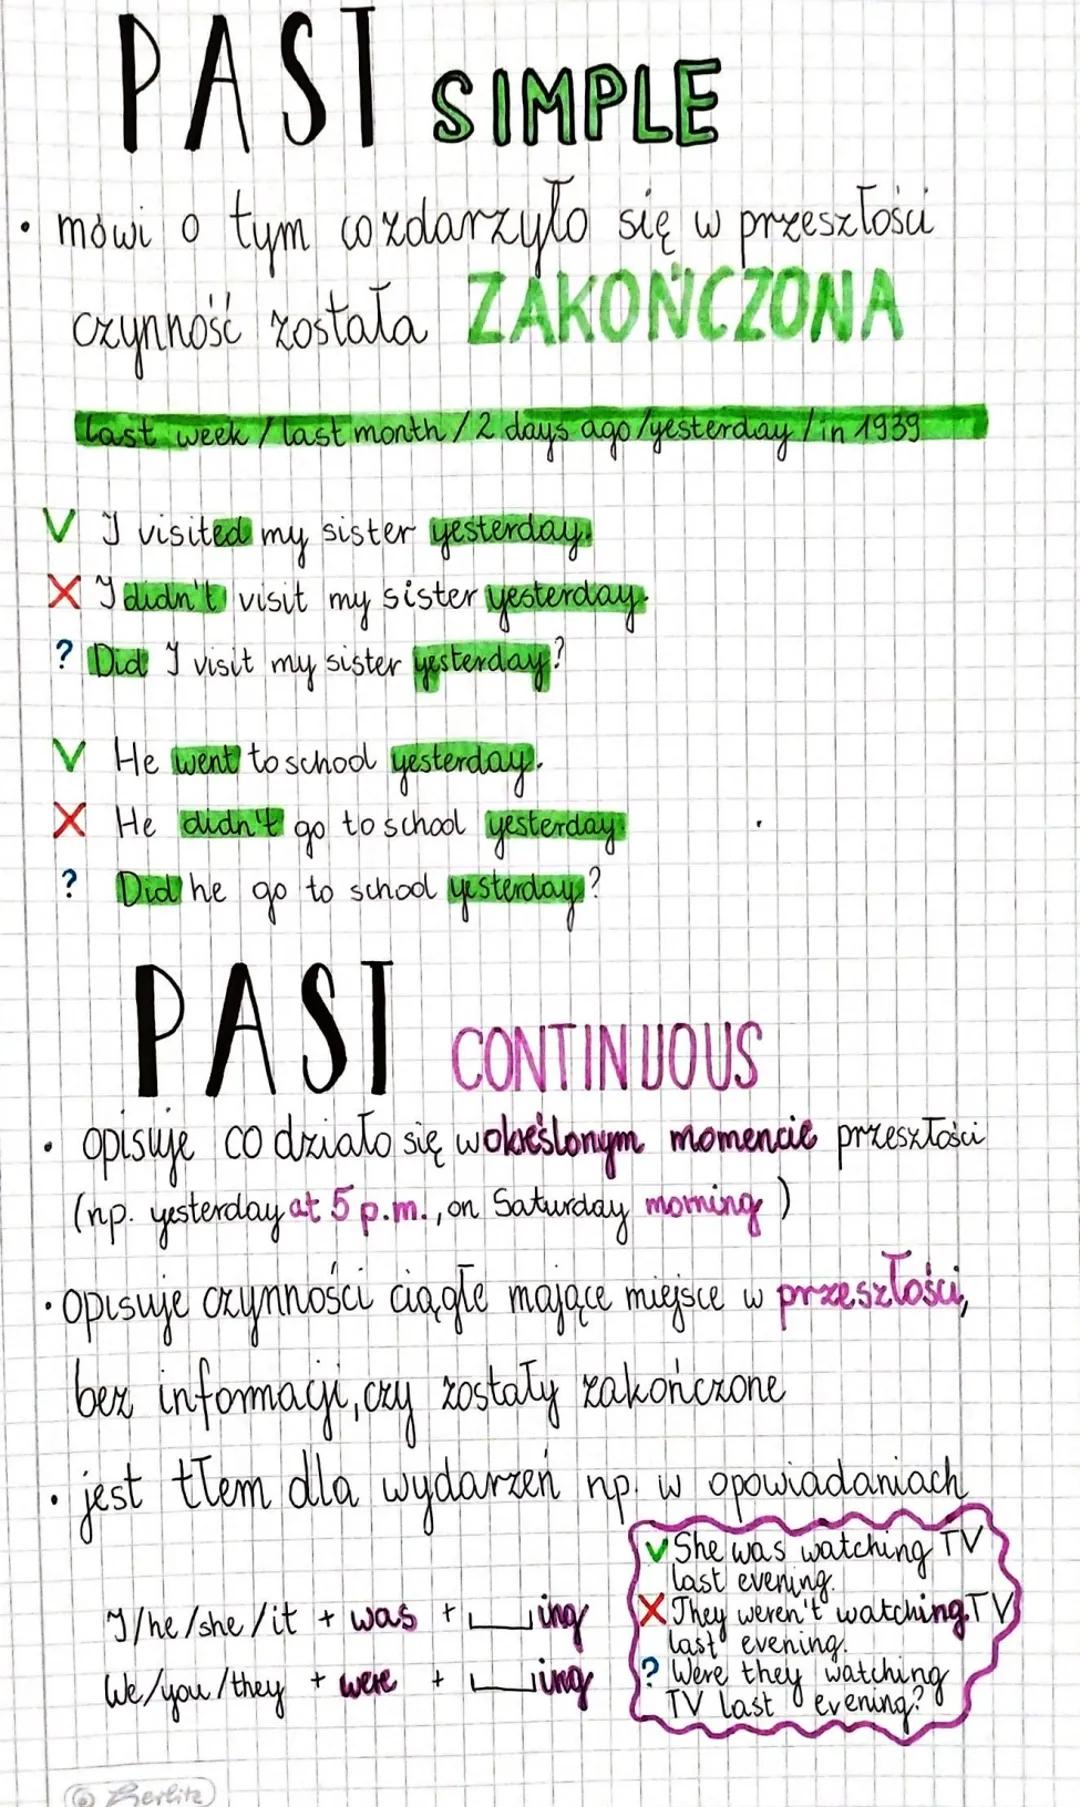 PAST SIMPLE
• mówi o tym co zdarzyło się w przeszłości
czynność została ZAKOŃCZONA
last week / last month / 2 days ago / yesterday / in 1939
V I visited my sister yesterday.
X I didn't visit my sister yesterday.
? Did I visit my sister yesterday?
V He went to school yesterday.
X He didn't go to school yesterday
? Did he go to school yesterday?
PAST CONTINUOUS
• opisuje co działo się w określonym momencie przeszłości
(np. yesterday at 5 p.m., on Saturday morning)
• opisuje czynności ciągłe mające miejsce w przeszłości,
bez informacji, czy zostały zakończone
• jest tłem dla wydarzeń np. w opowiadaniach
I/he/she/it + was + ing
We/you/they + were + ing
V She was watching TV
last evening.
X They weren't watching TV
last evening.
? Were they watching
TV last evening?
© Berlitz